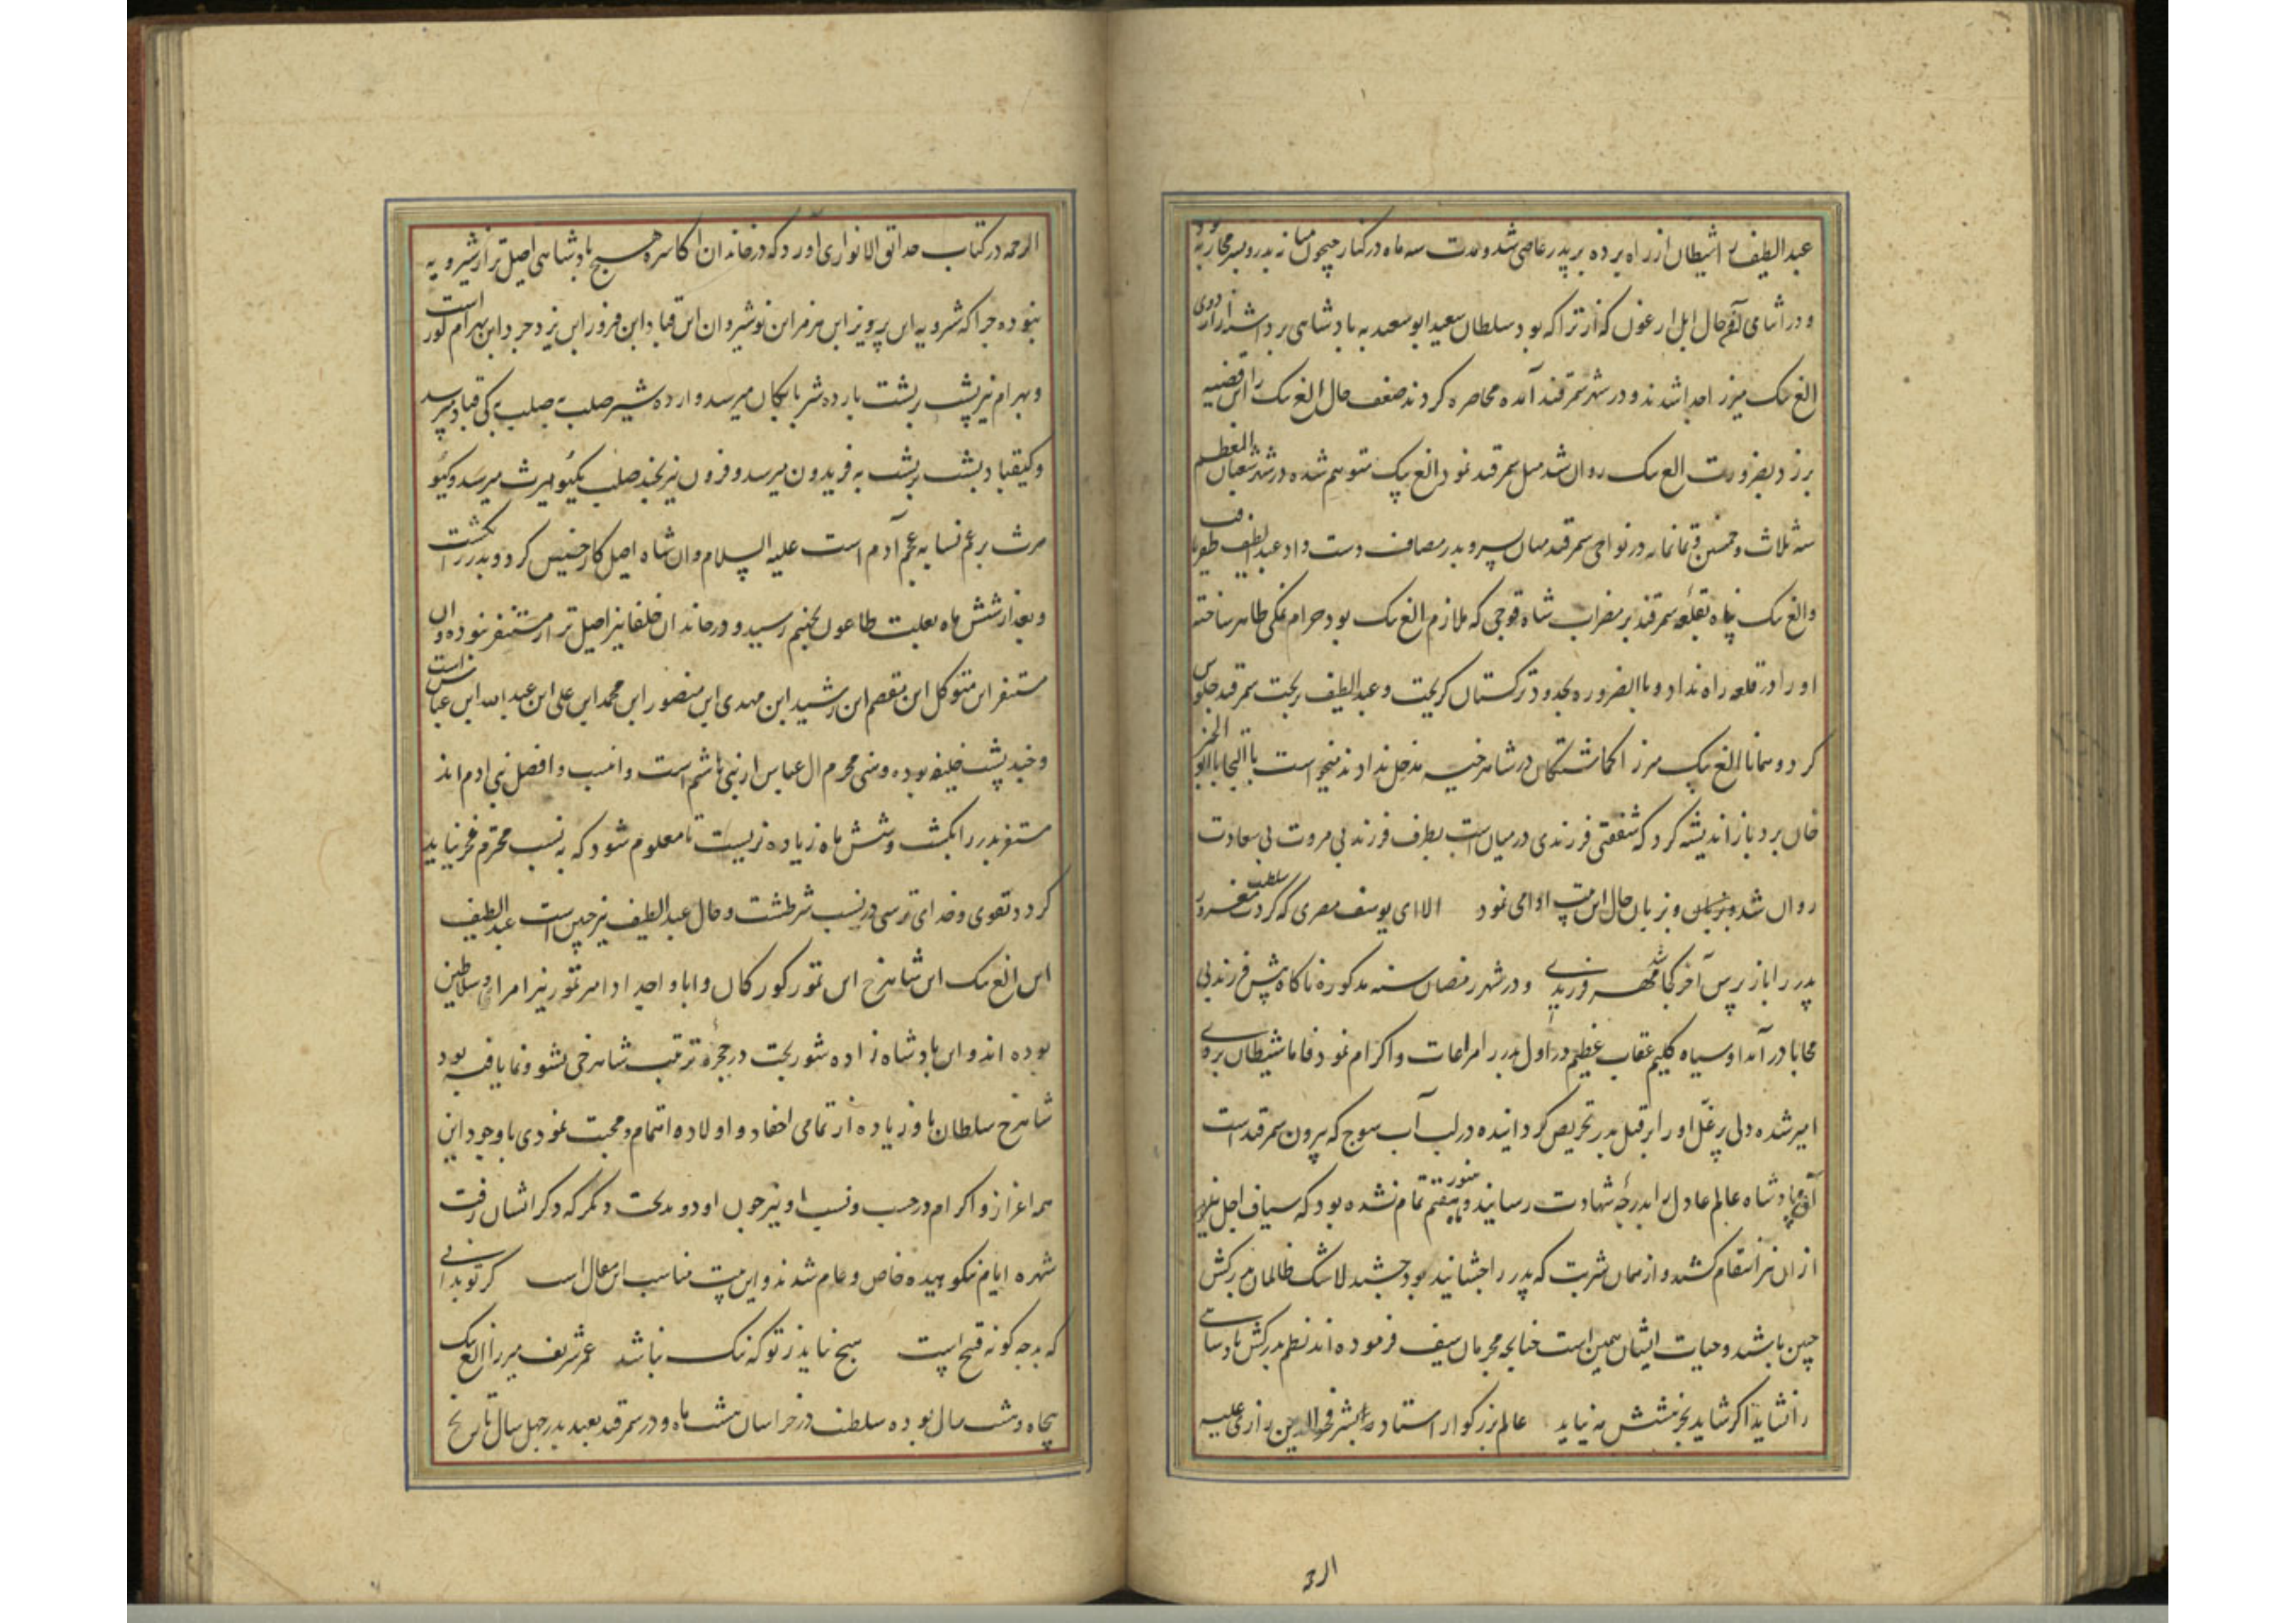 عبداللطیف را شیطان از راه برده بر پدر عاصی شد و مدت سه ماه در کنار جیحون میانه پدر و پسر محاربه بود
و در اثنای آن حال ایل ارغون که از تراکمه بود سلطان سعید ابوسعید به پادشاهی برداشتند از اردوی
الغ بیک میرزا جدا شدند و در شهر سمرقند آمده محاصره کردند ضعف حال الغ بیک را این قضیه
برزد بضرورت الغ بیک روان شد میل سمرقند نمود الغ بیک متوهم شده در شهر شعبان المعظم
سنه ثلاث و خمسین و ثمانمایه در نواحی سمرقند میان پسر و پدر مصاف دست داد عبداللطیف ظفر یافت
والغ بیک پناه بقلعه سمرقند بر مضراب شاه قوجی که ملازم الغ بیک بود حرام نمکی ظاهر ساخته
او را در قلعه راه نداد و باالضروره بحدود ترکستان گریخت و عبداللطیف بر تخت سمرقند جلوس
کرد و همانا الغ بیک میرزا گماشتگان در شاهرخیه مدخل ندادند میخواست با التجا باابو الخیر
خان برد باز اندیشه کرد که شفقتی فرزندی در میان است بطرف فرزند بی مروت بی سعادت
روان شد و بزبان حال این بیت ادا می نمود الا ای یوسف مصری که کردت سلطنت مغرور
پدر را باز پرس آخر کجا شد مهر فرزندی و در شهر رمضان سنه مذکوره ناگاه پیش فرزند بی
محابا در آمد او سیاه گلیم عقاب عظیم در اول پدر را مراعات و اکرام نمود فاما شیطان بروی
امیر شده دلی پر غل او را بر قتل پدر تحریص گردانیده در لب آب سوج که بیرون سمرقند است
آن پادشاه عالم عادل را بدرجه شهادت رسانید و هنوز تمام نشده بود که سیاف اجل
از ان نیز انتقام کشید و از همان شربت که پدر را چشانیده بود چشید لاشک ظالمان پدرکش
چنین باشند و حیات ایشان همین است چنانچه مجرمان سیف فرموده اند نظم پدرکش پادشاهی
را نشاید اگر شاید بجز شش مه نپاید عالم بزرگوار استاد البشر فخرالدین رازی علیه
الر حمه
الرحمه در کتاب حدائق الانوار می آورد که در خاندان اکاسره هیچ پادشاهی اصیل تر از شیرویه
نبوده چرا که شرویه ابن پرویز ابن هرمز ابن نوشیروان ابن قباد ابن فیروز ابن یزدجرد ابن بهرام گور است
و بهرام نیز پشت بر پشت بارده شر بابکان میرسد و ارده شیر صلب به صلب به کی قباد میرسد
وکیقباد پشت بر پشت به فریدون میرسد و فریدون نیز بچند صلب بکیومرث میرسد و کیو
مرث بزعم نسابه عجم آدم است علیه السلام و ان شاه اصیل کار خسیس کرد و پدر را بکشت
و بعد از شش ماه بعلت طاعون بجهنم رسید و در خاندان خلفا نیز اصیل تر از مستنصر نبوده و ان
مستنصر ابن متوکل ابن معتصم ابن رشید ابن مهدی ابن منصور ابن محمد ابن علی ابن عبدالله ابن عباس است
و چند پشت خلیفه بوده و بنی محرم ال عباس از بنی هاشم است و انسب و افضل بنی ادم اند
مستنصر پدر را بکشت و شش ماه زیاده نزیست تا معلوم شود که به نسب محترم فخر نباید
کرد و تقوی و خدای ترسی در نسب شرطست و حال عبداللطیف نیز چنین است عبداللطیف
ابن الغ بیک ابن شاهرخ ابن تیمور کورکان و ابا و اجداد امیر تیمور نیز امرا و سلاطین
بوده اند و این پادشاه زاده شوربخت در حجره تربیت شاهرخی نشو و نما یافته بود
شاهرخ سلطان باو زیاده از تمامی احفاد و اولاده اهتمام و محبت نمودی با وجود این
همه اعزاز و اکرام در حسب و نسب او نیز چون او دو بدبخت دیگر که ذکر ایشان رفت
شهره ایام نکوهیده خاص و عام شدند و این بیت مناسب این مقال است گر تو بدانی
که بد چه گونه قبیح است هیچ نیاید ز تو که نیک نباشد عمر شریف میرزا الغ بیک
پنجاه و هشت سال بوده سلطنت در خراسان هشت ماه و در سمرقند بعهد پدر چهل سال تاریخ